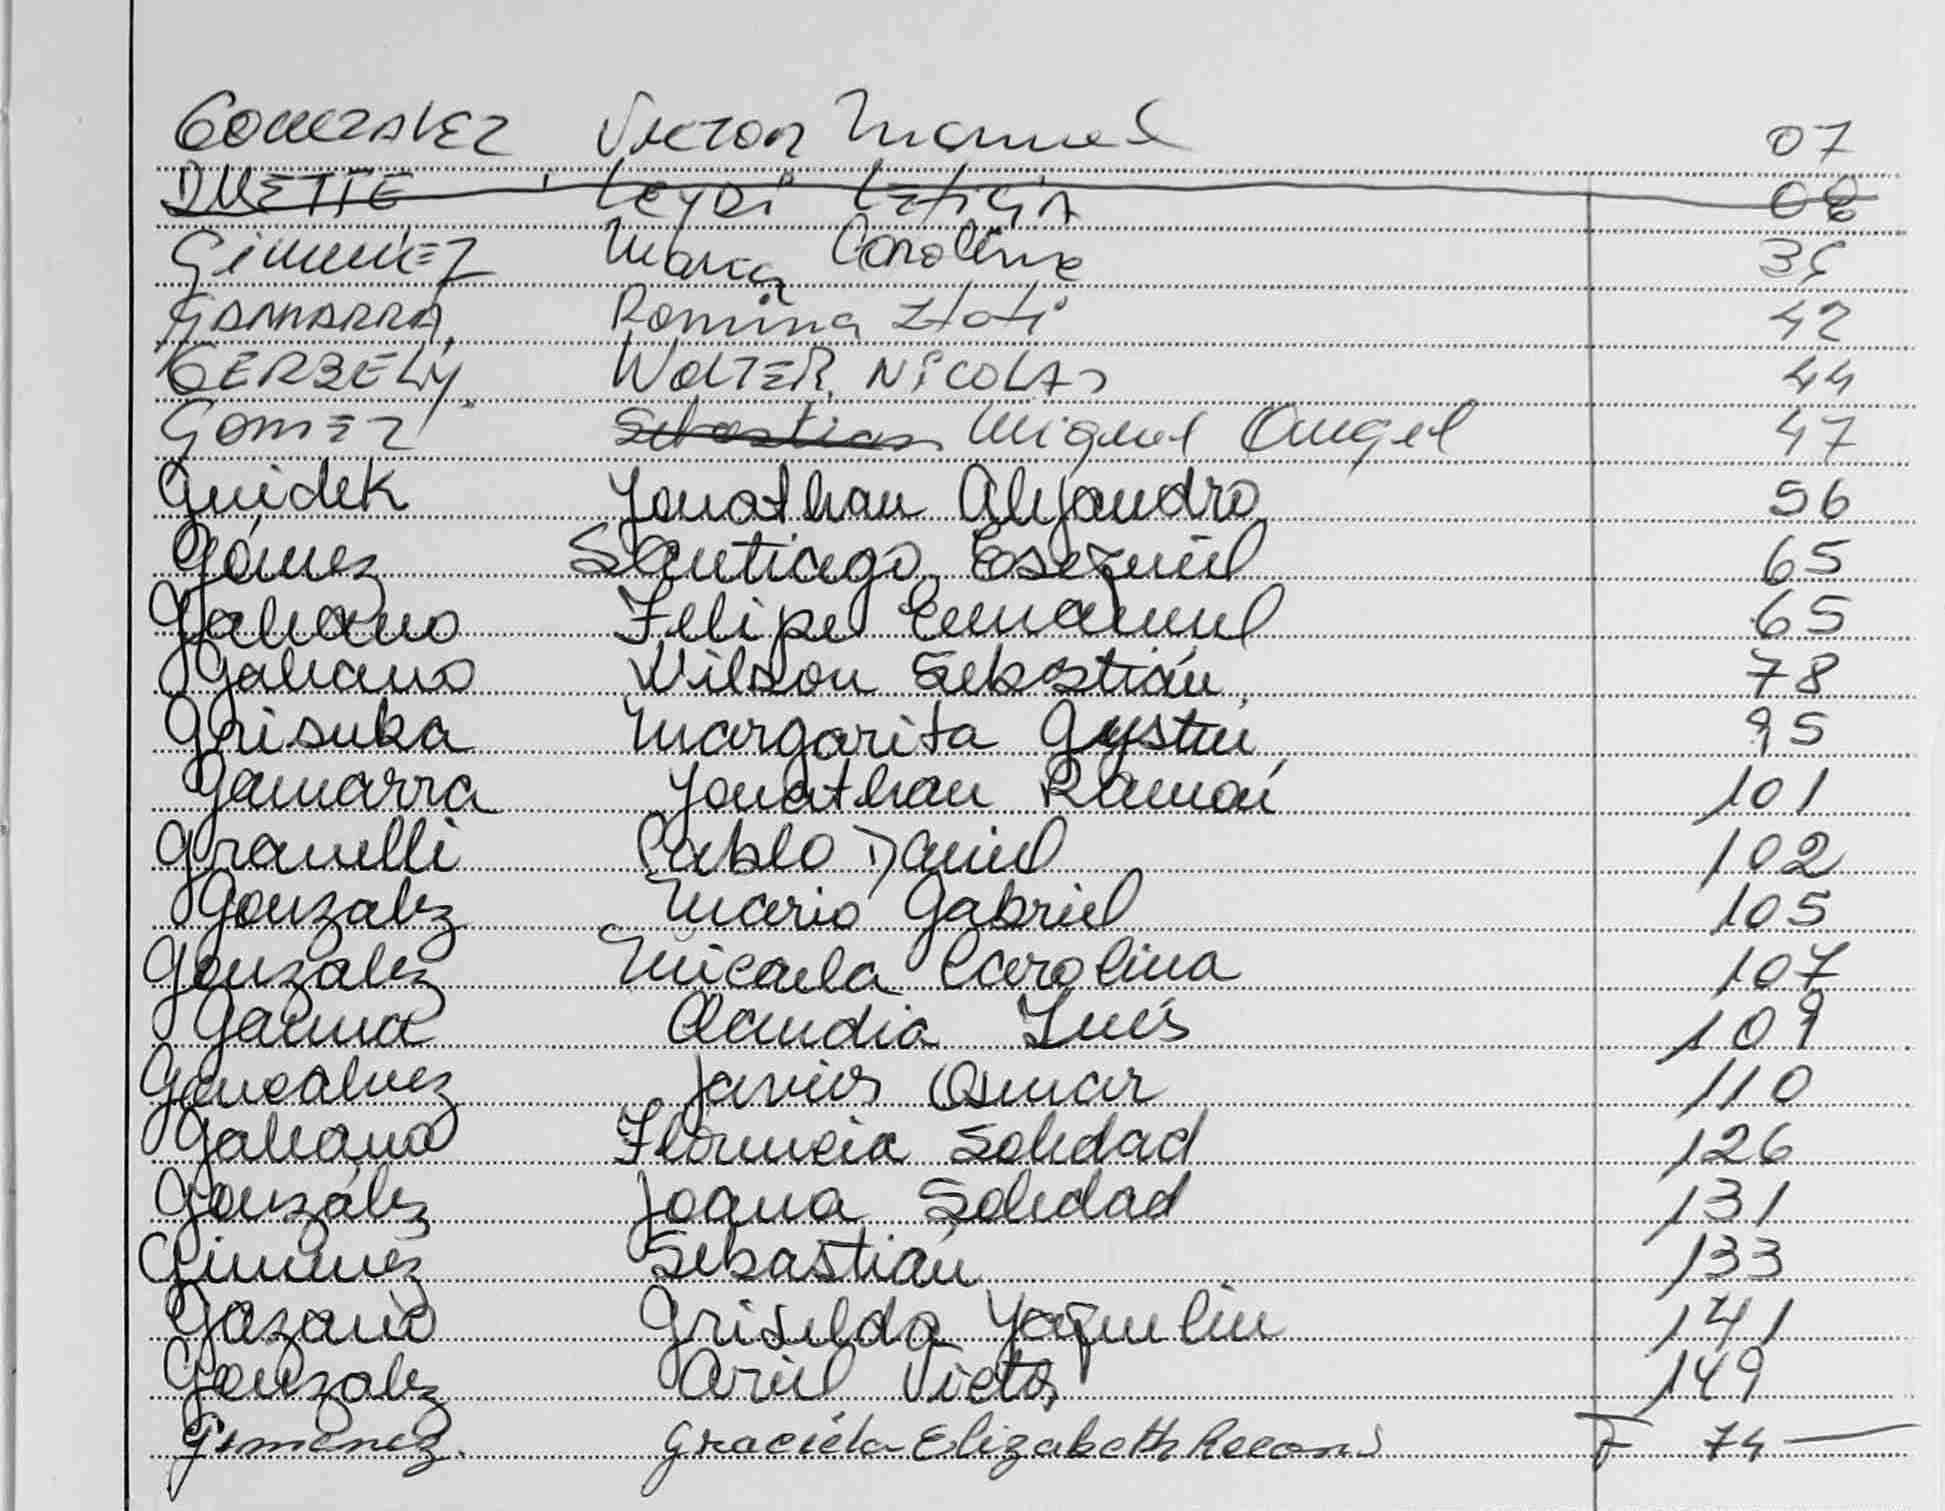 GONZALEZ Victor Manuel 07
DUETTE Leydi Leticia 08
Gimenez Maria Caroline 35
GAMARRA Romina Itati 42
GERZELY WOLTER NICOLAS 44
GOMEZ Sebastian Miguel Angel 47
Guidek Jonathan Alejandro 56
Gómez Santiago Esequiel 65
Galeano Felipe Emanuel 65
Galeano Wilson Sebastián 78
Grisuka Margarita 95
Gamarra Jonathan Ramón 101
Granelli Pablo Daniel 102
Gonzalez Mario Gabriel 105
Gonzalez Micaela Carolina 107
Gauna Claudia Inés 109
Goncalvez Javier Osmar 110
Galeano Florencia Soledad 126
González Joana Soledad 131
Giménez Sebastián 133
Gazano Griselda Yaquelin 141
Gonzalez Ariel Victor 149
Gimenez Graciela Elizabeth F 74